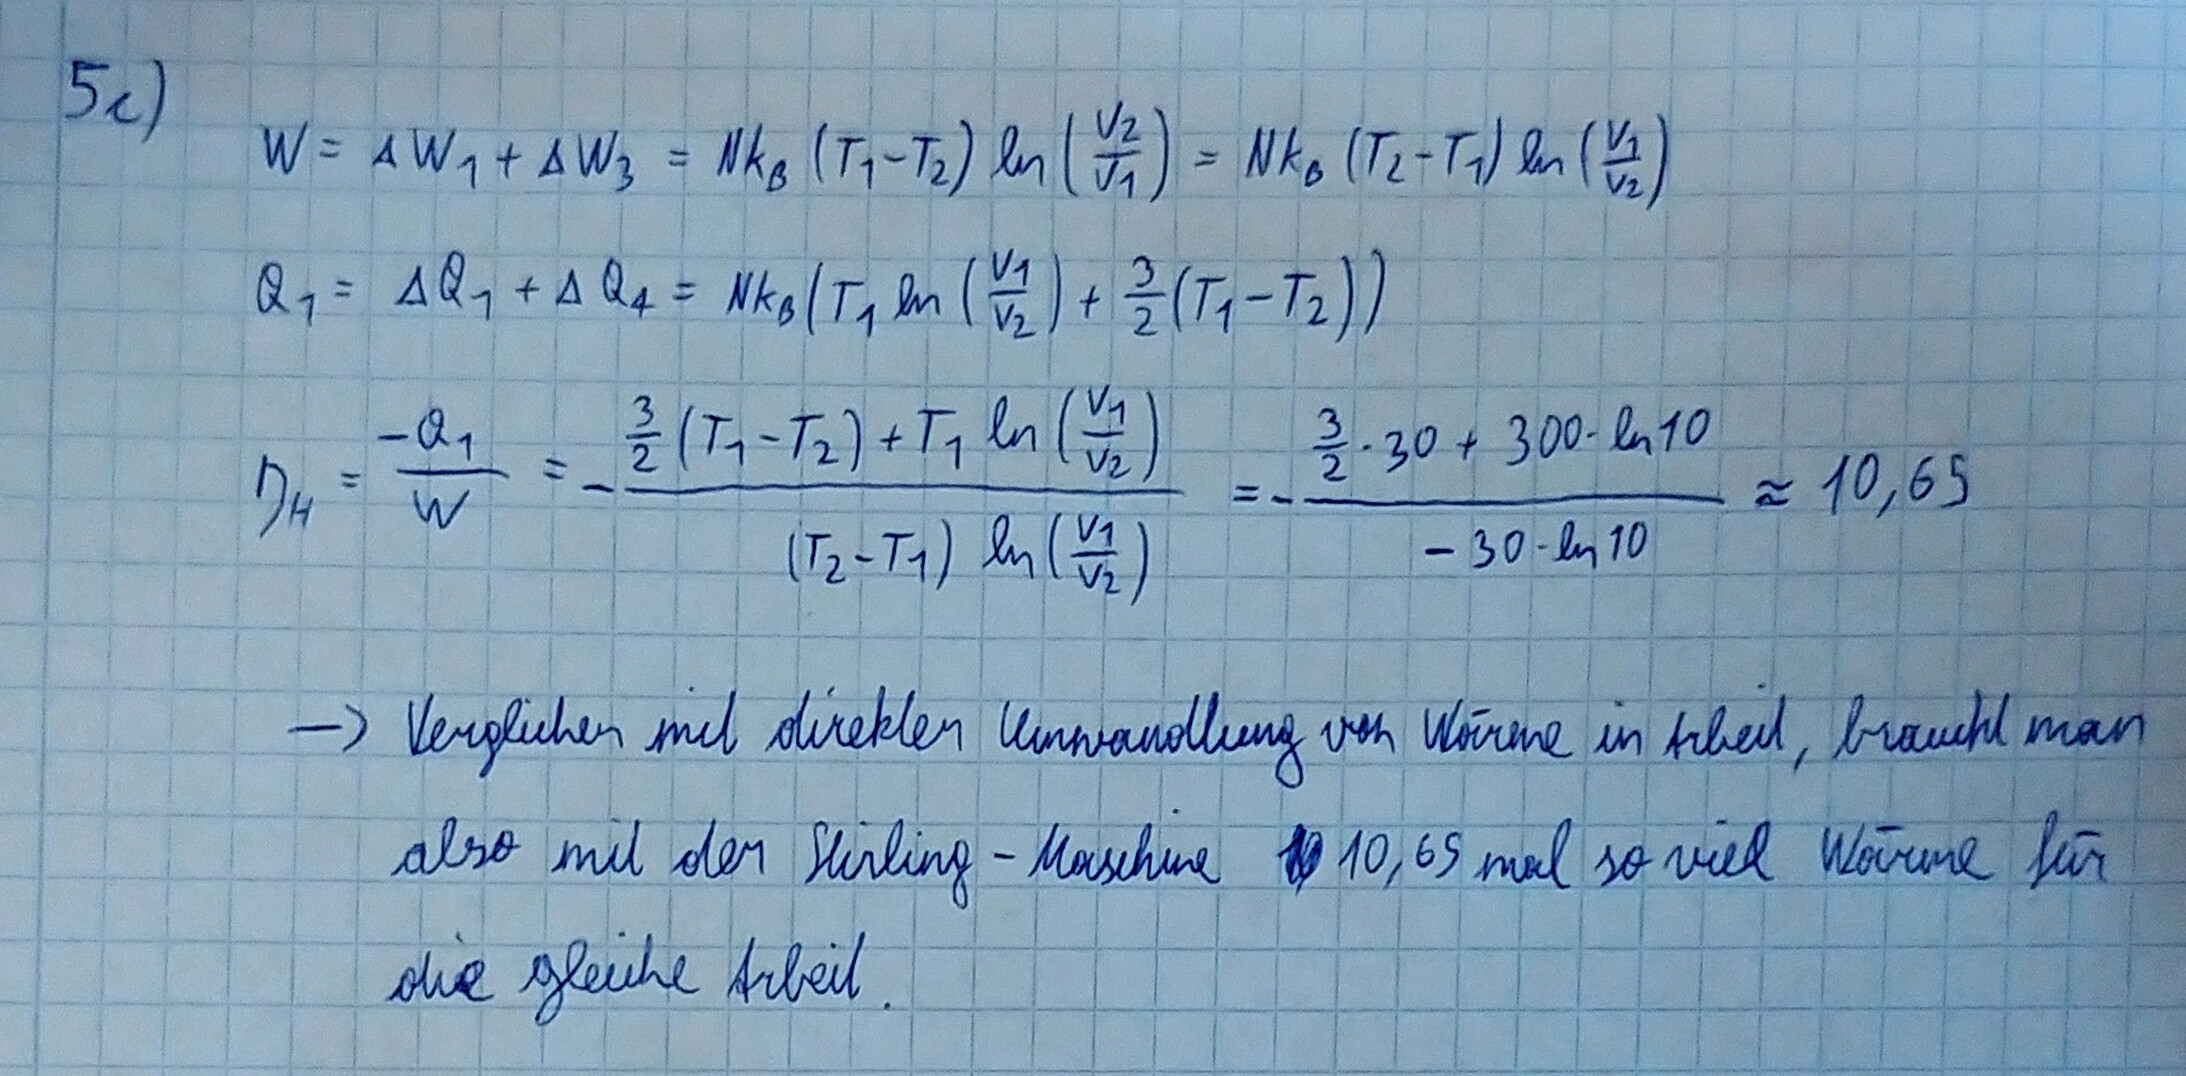 5c)
W = ΔW₁ + ΔW₃ = Nk_B (T₁-T₂) ln (V₂/V₁) = Nk_B (T₂-T₁) ln (V₁/V₂)
Q₁ = ΔQ₁ + ΔQ₄ = Nk_B (T₁ ln (V₁/V₂) + 3/2 (T₁-T₂))
η_H = -Q₁/W = - (3/2 (T₁-T₂) + T₁ ln (V₁/V₂)) / ((T₂-T₁) ln (V₁/V₂)) = - (3/2 · 30 + 300 · ln 10) / (-30 · ln 10) ≈ 10,65
-> Verglichen mit direkten Umwandlung von Wärme in Arbeit, braucht man
also mit der Stirling-Maschine 10,65 mal so viel Wärme für
die gleiche Arbeit.